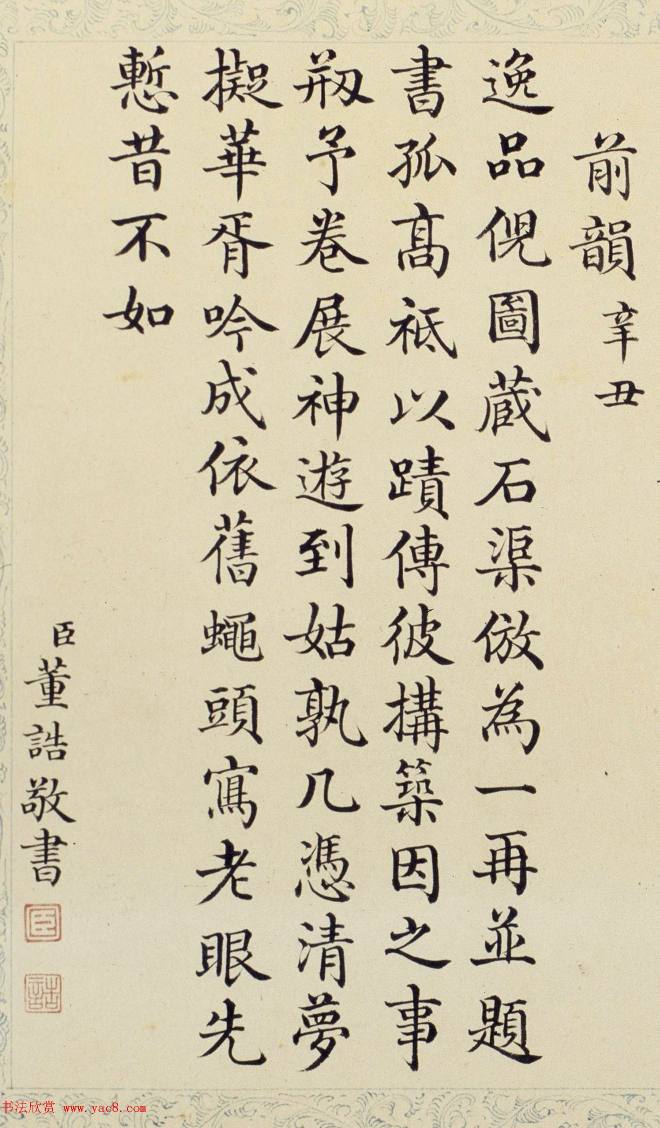 前韻 辛丑
逸品倪圖蔵石渠倣為一再並題
書孤髙祗以蹟傳彼搆築因之事
刱予卷展神遊到姑孰几憑清夢
擬華胥吟成依舊蠅頭寫老眼先
慙昔不如
臣董誥敬書
臣
誥
书法欣赏 www.yac8.com